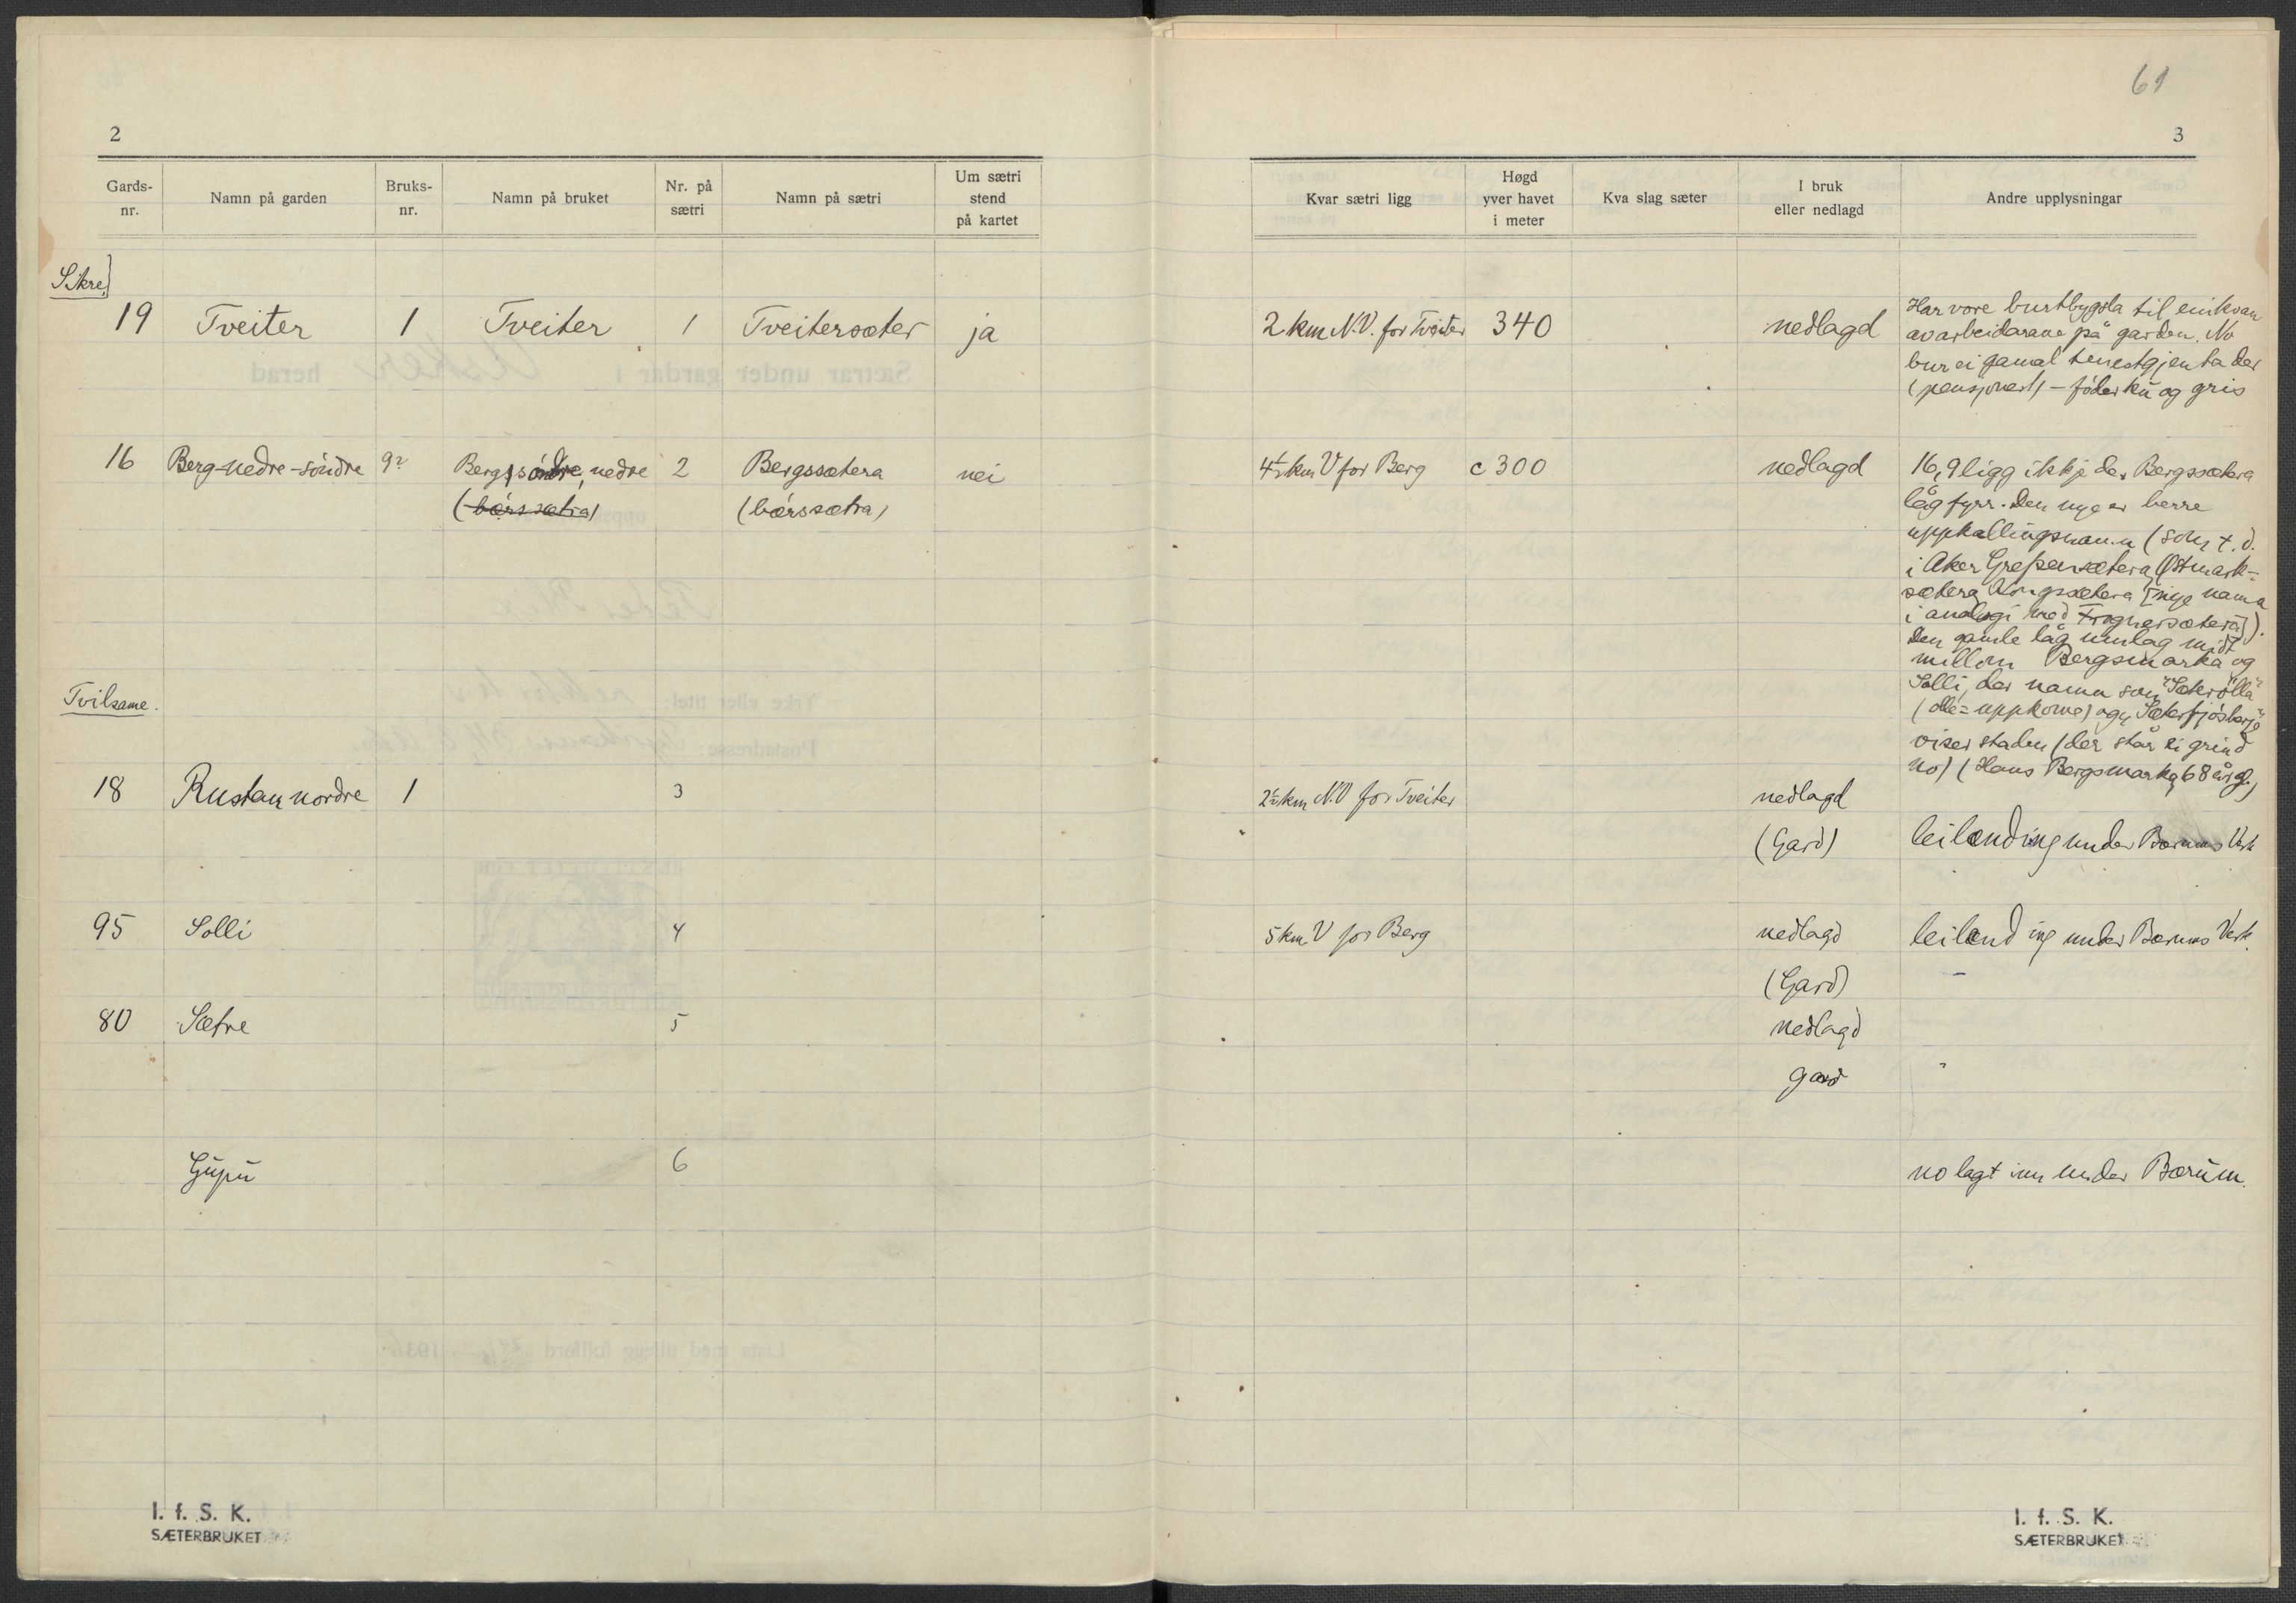 61
2
3
Gards-nr.
Namn på garden
Bruks-nr.
Namn på bruket
Nr. på sætri
Namn på sætri
Um sætri stend på kartet
Kvar sætri ligg
Høgd yver havet i meter
Kva slag sæter
I bruk eller nedlagd
Andre upplysningar
Sikre
19 Tveiter 1 Tveiter 1 Tveitersæter ja 2 km N.V. for Tveiter 340 nedlagd
Har vore burtbygsla til einkvan
av arbeidarane på garden. No
bur ei gamal tenestgjenta der
(pensjonert) – föder ku og gris
16 Berg-nedre-söndre 9? Berg söndre, nedre 2 Bergssætera nei 4½ km V for Berg c 300 nedlagd
(bærssætra) (bærssætra)
16,9 ligg ikkje der Bergssætera
låg fyrr. Den nye er berre
uppkallingsnamn (som t.d.
i Aker Grefsensætera, Østmark-
sætera, Kongssætera [nye namn
i analogi med Frognersætera]).
Den gamle låg umlag midt
millom Bergsmarka og
Solli, der namn som "Sæterölla"
(olle = uppkome) og "Sæterfjösberje"
viser staden (der står ei grind
no) (Hans Bergsmarka, 68 år gl.)
Tvilsame.
18 Rustan nordre 1 3 2½ km N.V for Tveiter nedlagd
(Gard) leilending under Bærums Verk
95 Solli 4 5 km V for Berg nedlagd leilending under Bærums Verk.
(Gard) –
80 Sætre 5 nedlagd
gard "
Gupu 6 no lagt inn under Bærum.
I. f. S. K.
SÆTERBRUKET
I. f. S. K.
SÆTERBRUKET